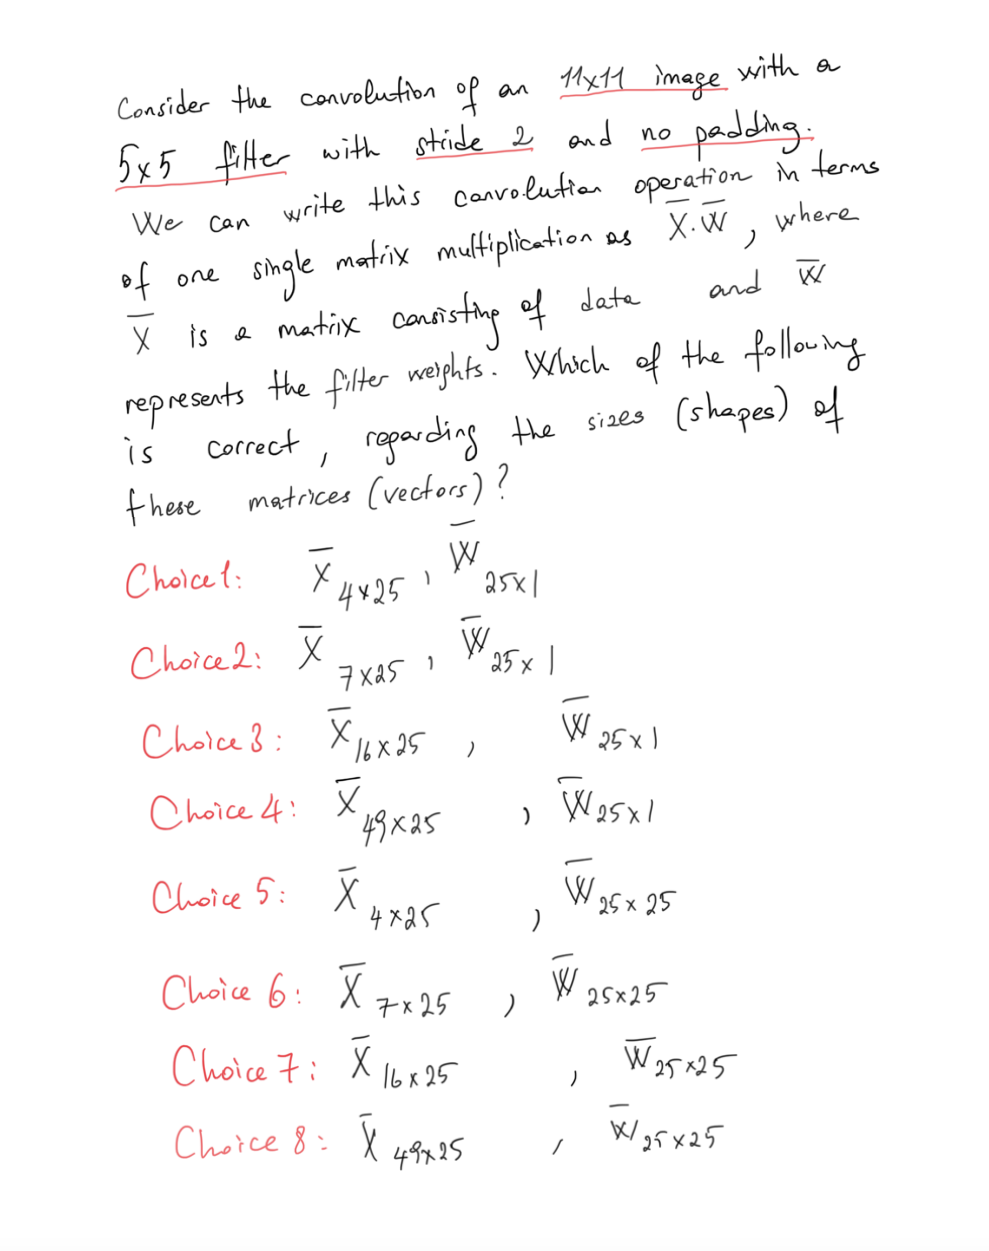 Consider the convolution of an 11x11 image with a
5x5 filter with stride 2 and no padding.
We can write this convolution operation in terms
of one single matrix multiplication as X̅.W̅, where
X̅ is a matrix consisting of data and W̅
represents the filter weights. Which of the following
is correct, regarding the sizes (shapes) of
these matrices (vectors)?
Choice1: X̅ 4x25, W̅ 25x1
Choice2: X̅ 7x25, W̅ 25x1
Choice 3: X̅ 16x25, W̅ 25x1
Choice 4: X̅ 49x25, W̅ 25x1
Choice 5: X̅ 4x25, W̅ 25x25
Choice 6: X̅ 7x25, W̅ 25x25
Choice 7: X̅ 16x25, W̅ 25x25
Choice 8: X̅ 49x25, W̅ 25x25